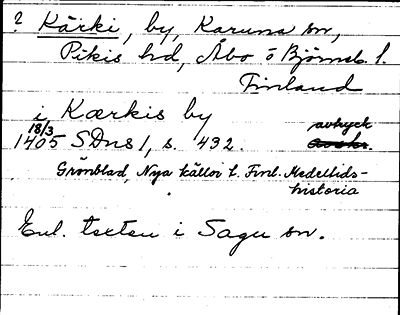 ? Kärki, by, Karuna sn,
Pikis hd, Åbo o Björneb. l.
Finland
i Kærkis by
18/3 avtryck
1405 SDns 1, s. 492.
Grönblad, Nya källor t. Finl. Medeltids-
historia
Enl. texten i Sagu sn.